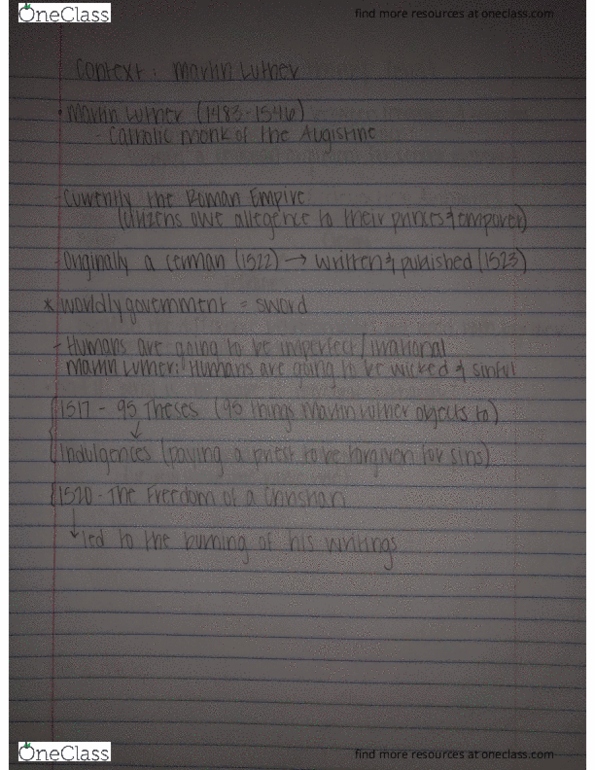 OneClass
find more resources at oneclass.com
Context: Martin Luther
Martin Luther (1483-1546)
- Catholic monk of the Augistine
- Currently the Roman Empire
(citizens owe allegence to their princes & emporer)
- Originally a (1522) → written & published (1523)
* worldly government = sword
- Humans are going to be imperfect/irrational
Martin Luther: Humans are going to be wicked & sinful
1517 - 95 Theses (95 things Martin Luther objects to)
↓
Indulgences (paying a priest to be forgiven for sins)
1520 - The Freedom of a Christian
↓ led to the burning of his writings
OneClass
find more resources at oneclass.com